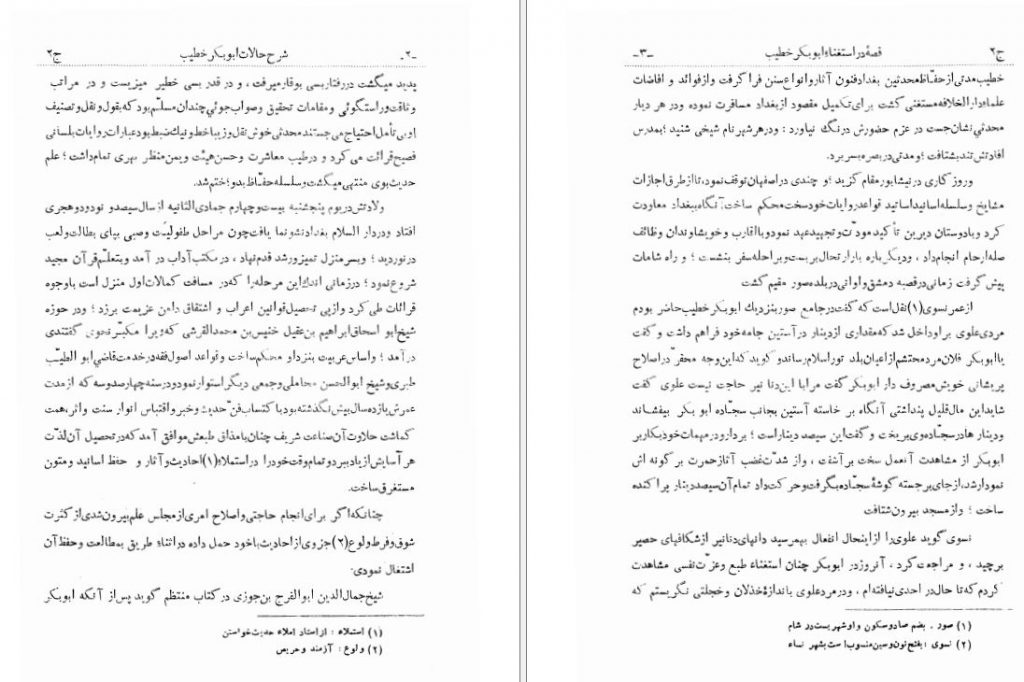 -۲- شرح حالات ابوبکر خطیب ج۲
پدید میگشت در رفتار بسی بوقار میرفت ، و در قدر بسی خطیر میزیست و در مراتب
وثاقت و راستگوئی و مقامات تحقیق و صواب جوئی چندان مسلّم بود که بقول و نقل و تصنیف
او بی تأمل احتیاج می جستند محدثی خوش نقل و زیبا خط و نیك ضبط بود عبارات روایات بلسانی
فصیح قرائت می کرد و در طیب معاشرت و حسن هیئت و یمن منظر بهری تمام داشت ؛ علم
حدیث بوی منتهی میگشت و سلسله حفّاظ بدو ؛ ختم شد.
ولادتش در یوم پنجشنبه بیست و چهارم جمادی الثانیه از سال سیصد و نود و دو هجری
افتاد و در دار السلام بغداد نشو و نما یافت چون مراحل طفولیّت و صبی بپای بطالت و لعب
در نوردید ؛ و بسر منزل تمیز و رشد قدم نهاد ، در مکتب آداب در آمد و بتعلّم قرآن مجید
شروع نمود ؛ و در زمانی اندك این مرحله را که در مسافت کمالات اول منزل است با وجوه
قرائات طی کرد و از پی تحصیل قوانین اعراب و اشتقاق دامن عزیمت برزد ؛ و در حوزه
شیخ ابو اسحاق ابراهیم بن عقیل خنیس بن محمد القرشی که ویرا مکبّر نحوی گفتندی
در آمد ؛ و اساس عربیت بنزد او محکم ساخت و قواعد اصول فقه در خدمت قاضی ابو الطیّب
طبری و شیخ ابو الحسن محاملی و جمعی دیگر استوار نمود و در سنه چهار صد و سه که از مدت
عمرش یازده سال بیش نگذشته بود با کتساب فنّ حدیث و خبر و اقتباس انوار سنت و اثر، همت
کماشت حلاوت آن صناعت شریف چنان با مذاق طبعش موافق آمد که در تحصیل آن لذّت
هر آسایش از یاد ببرد و تمام وقت خود را در استملاء (۱) احادیث و آثار و حفظ اسانید و متون
مستغرق ساخت.
چنانکه اگر برای انجام حاجتی و اصلاح امری از مجلس علم بیرون شدی از کثرت
شوق و فرط ولوع (۲) جزوی از احادیث با خود حمل داده در اثناء طریق بمطالعت و حفظ آن
اشتغال نمودی-
شیخ جمال الدین ابو الفرج بن جوزی در کتاب منتظم گوید پس از آنکه ابوبکر
(۱) استملاء : از استاد املاء حدیث خواستن
(۲) ولوع : آزمند و حریص
ج۲ قصهٔ در استغناء ابوبکر خطیب -۳-
خطیب مدتی از حفّاظ محدثین بغداد فنون آثار و انواع سنن فرا گرفت و از فوائد و افاضات
علماء دار الخلافه مستغنی گشت برای تکمیل مقصود از بغداد مسافرت نموده و در هر دیار
محدثی نشان جست در عزم حضورش درنگ نیاورد : و در هر شهر نام شیخی شنید ؛ بمدرس
افادتش تند بشتافت ؛ و مدتی در بصره بسر برد.
و روز گاری در نیشابور مقام گزید ؛ و چندی در اصفهان توقف نمود، تا از طرق اجازات
مشایخ و سلسله اسانید اساتید قواعد روایات خود سخت محکم ساخت؛ آنگاه ببغداد معاودت
کرد و با دوستان دیرین تأکید مودّت و تجهید عهد نمود و با اقارب و خویشاوندان وظائف
صله ارحام انجام داد ، و دیگر باره بار ارتحال بر بست و بر راحله سفر بنشست ؛ و راه شامات
پیش گرفت زمانی در قصبه دمشق و اوانی در بلده صور مقیم گشت
از عمر نسوی (۱) نقل است که گفت در جامع صور بنزدیك ابوبکر خطیب حاضر بودم
مردی علوی بر او داخل شد که مقداری از دینار در آستین جامه خود فراهم داشت و گفت
یا ابوبکر فلان مرد محتشم از اعیان بلد تورا سلام رساند و گوید که این وجه محقّر در اصلاح
پریشانی خویش مصروف دار ابوبکر گفت مرا با این دنانیر حاجت نیست علوی گفت
شاید این مال قلیل پنداشتی آنگاه بر خاسته آستین بجانب سجّاده ابو بکر بیفشاند
و دینار ها در سجّاده وی بریخت و گفت این سیصد دینار است ؛ بردار و در مهمات خود بکار بر
ابوبکر از مشاهدت آنعمل سخت بر آشفت ، و از شدّت غضب آثار حمرت بر گونه اش
نمودار شد، از جای بر جسته گوشهٔ سجّاده بگرفت و حرکت داد تمام آن سیصد دینار پراکنده
ساخت ؛ و از مسجد بیرون شتافت
نسوی گوید علوی را از اینحال انفعال بهمرسید دانهای دنانیر از شکافهای حصیر
برچید ، و مراجعت کرد ، آنروز در ابوبکر چنان استغناء طبع و عزّت نفسی مشاهدت
کردم که تا حال در احدی نیافته ام ، و در مرد علوی باندازهٔ خذلان و خجلتی نگریستم که
(۱) صور . بضم صاد و سکون واو شهریست در شام
(۲) نسوی : بفتح نون و سین منسوب است بشهر نساء